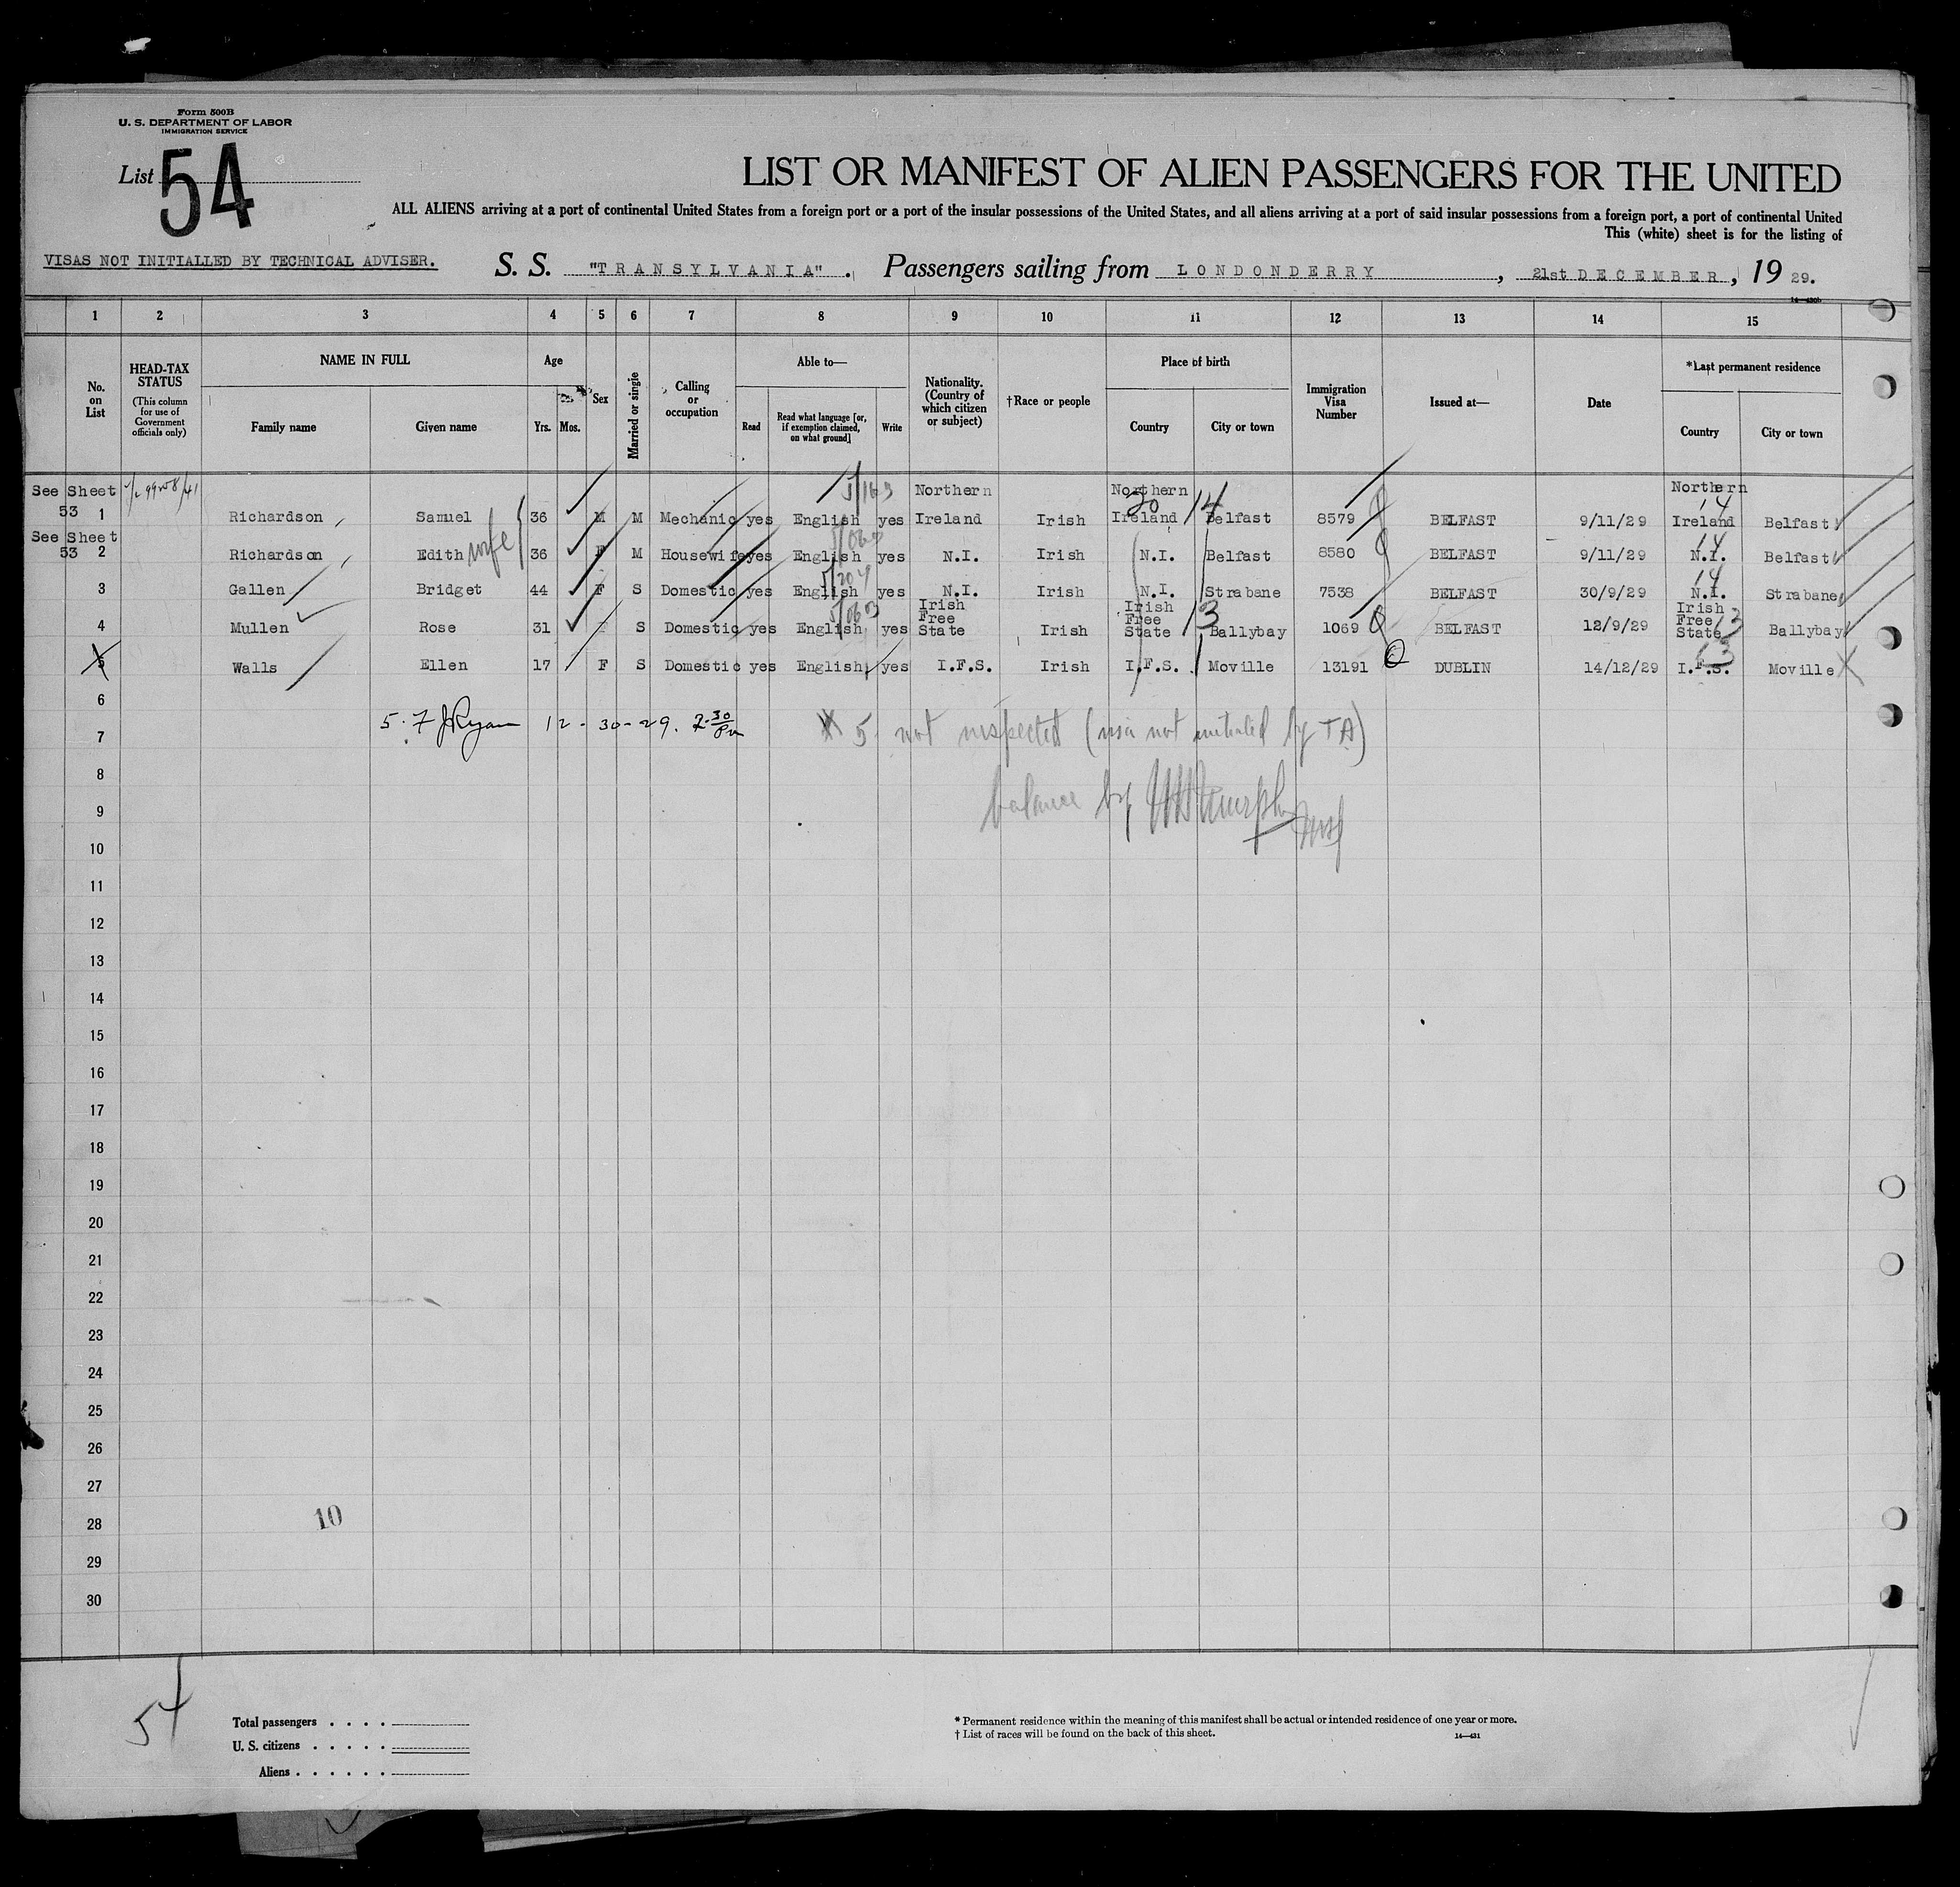 Form 500B
U. S. DEPARTMENT OF LABOR
IMMIGRATION SERVICE
List 54
LIST OR MANIFEST OF ALIEN PASSENGERS FOR THE UNITED
ALL ALIENS arriving at a port of continental United States from a foreign port or a port of the insular possessions of the United States, and all aliens arriving at a port of said insular possessions from a foreign port, a port of continental United
This (white) sheet is for the listing of
VISAS NOT INITIALLED BY TECHNICAL ADVISER. S. S. "TRANSYLVANIA". Passengers sailing from LONDONDERRY, 21st DECEMBER, 19 29.
14—430b
1 2 3 4 5 6 7 8 9 10 11 12 13 14 15
No. on List
HEAD-TAX STATUS (This column for use of Government officials only)
NAME IN FULL Family name Given name
Age Yrs. Mos.
Sex
Married or single
Calling or occupation
Able to— Read Read what language [or, if exemption claimed, on what ground] Write
Nationality. (Country of which citizen or subject)
†Race or people
Place of birth Country City or town
Immigration Visa Number
Issued at—
Date
*Last permanent residence Country City or town
See Sheet 53 1 Richardson Samuel 36 M M Mechanic yes English 5/163 yes Northern Ireland Irish Northern Ireland 20 14 Belfast 8579 BELFAST 9/11/29 Northern Ireland 14 Belfast
See Sheet 53 2 Richardson Edith wife 36 F M Housewife yes English yes N.I. Irish N.I. Belfast 8580 BELFAST 9/11/29 N.I. 14 Belfast
3 Gallen Bridget 44 F S Domestic yes English 5/204 yes N.I. Irish N.I. Strabane 7538 BELFAST 30/9/29 N.I. 14 Strabane
4 Mullen Rose 31 F S Domestic yes English 5/063 yes Irish Free State Irish Irish Free State 13 Ballybay 1069 BELFAST 12/9/29 Irish Free State 13 Ballybay
5 Walls Ellen 17 F S Domestic yes English yes I.F.S. Irish I.F.S. Moville 13191 DUBLIN 14/12/29 I.F.S. 13 Moville X
6
5. F J Ryan 12-30-29. 2 30 Pm X 5 not inspected (visa not initialed by TA)
7
8
balance by Murphy Insp
9
10
11
12
13
14
15
16
17
18
19
20
21
22
23
24
25
26
27
28 10
29
30
54
Total passengers . . . .
U. S. citizens . . . . .
Aliens . . . . . .
* Permanent residence within the meaning of this manifest shall be actual or intended residence of one year or more.
† List of races will be found on the back of this sheet.
14—431